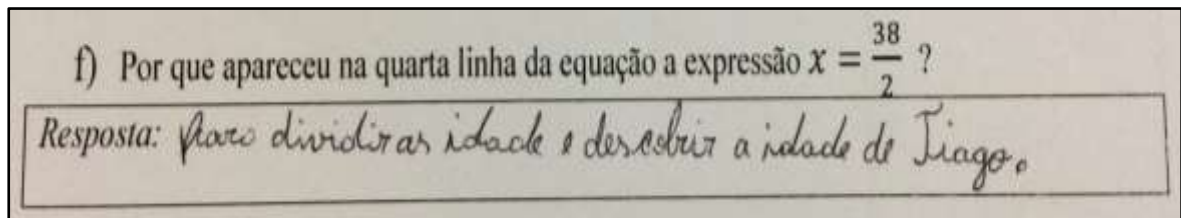 f) Por que apareceu na quarta linha da equação a expressão x = 38/2 ?
Resposta: Para dividir as idade e descobrir a idade de Tiago.